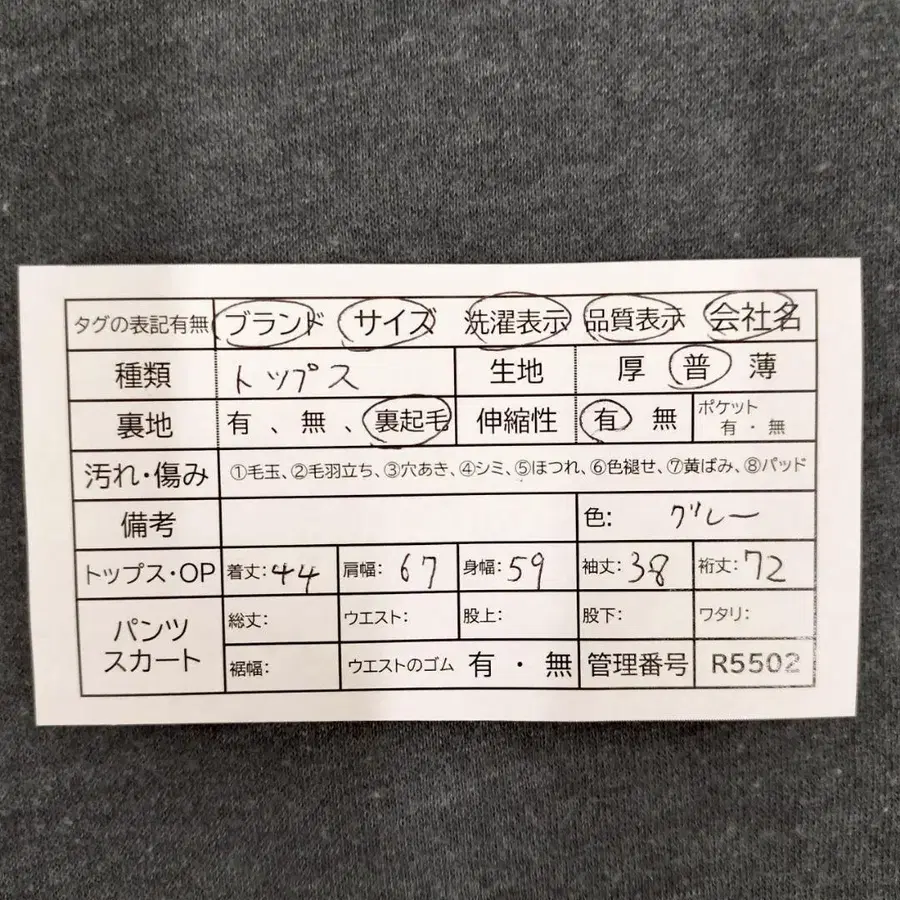 タグの表記有無 ブランド サイズ 洗濯表示 品質表示 会社名
種類 トップス 生地 厚 普 薄
裏地 有、無、裏起毛 伸縮性 有 無 ポケット 有・無
汚れ・傷み ①毛玉、②毛羽立ち、③穴あき、④シミ、⑤ほつれ、⑥色褪せ、⑦黄ばみ、⑧パッド
備考 色: グレー
トップス・OP 着丈:44 肩幅:67 身幅:59 袖丈:38 裄丈:72
パンツ スカート 総丈: ウエスト: 股上: 股下: ワタリ:
裾幅: ウエストのゴム 有・無 管理番号 R5502